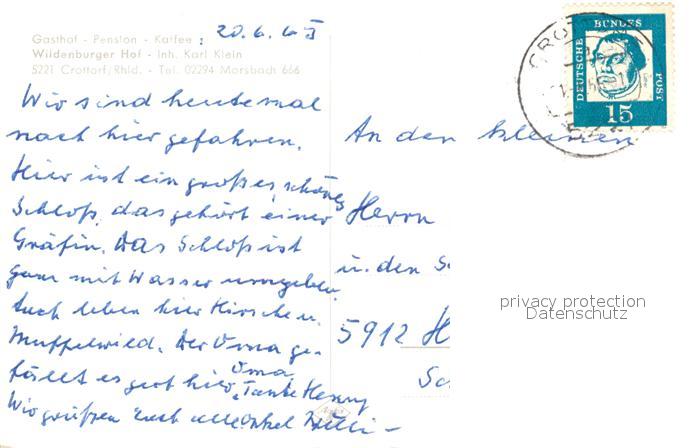 Gasthof - Pension - Kaffee
Wildenburger Hof - Inh. Karl Klein
5221 Crottorf/Rhld. - Tel. 02294 Morsbach 666
20.6.65
Wir sind heute mal
nach hier gefahren.
Hier ist ein großes, schönes
Schloß, das gehört einer
Gräfin. Das Schloß ist
ganz mit Wasser umgeben.
Auch leben hier Hirsche u.
Muffelwild. Der Oma ge-
fällt es gut hier.
Wir grüßen Euch alle Onkel Willi -
Oma, Tante Henny
An den kleinen
Herrn
u. den
5912 H
DEUTSCHE
BUNDES
POST
15
privacy protection
Datenschutz